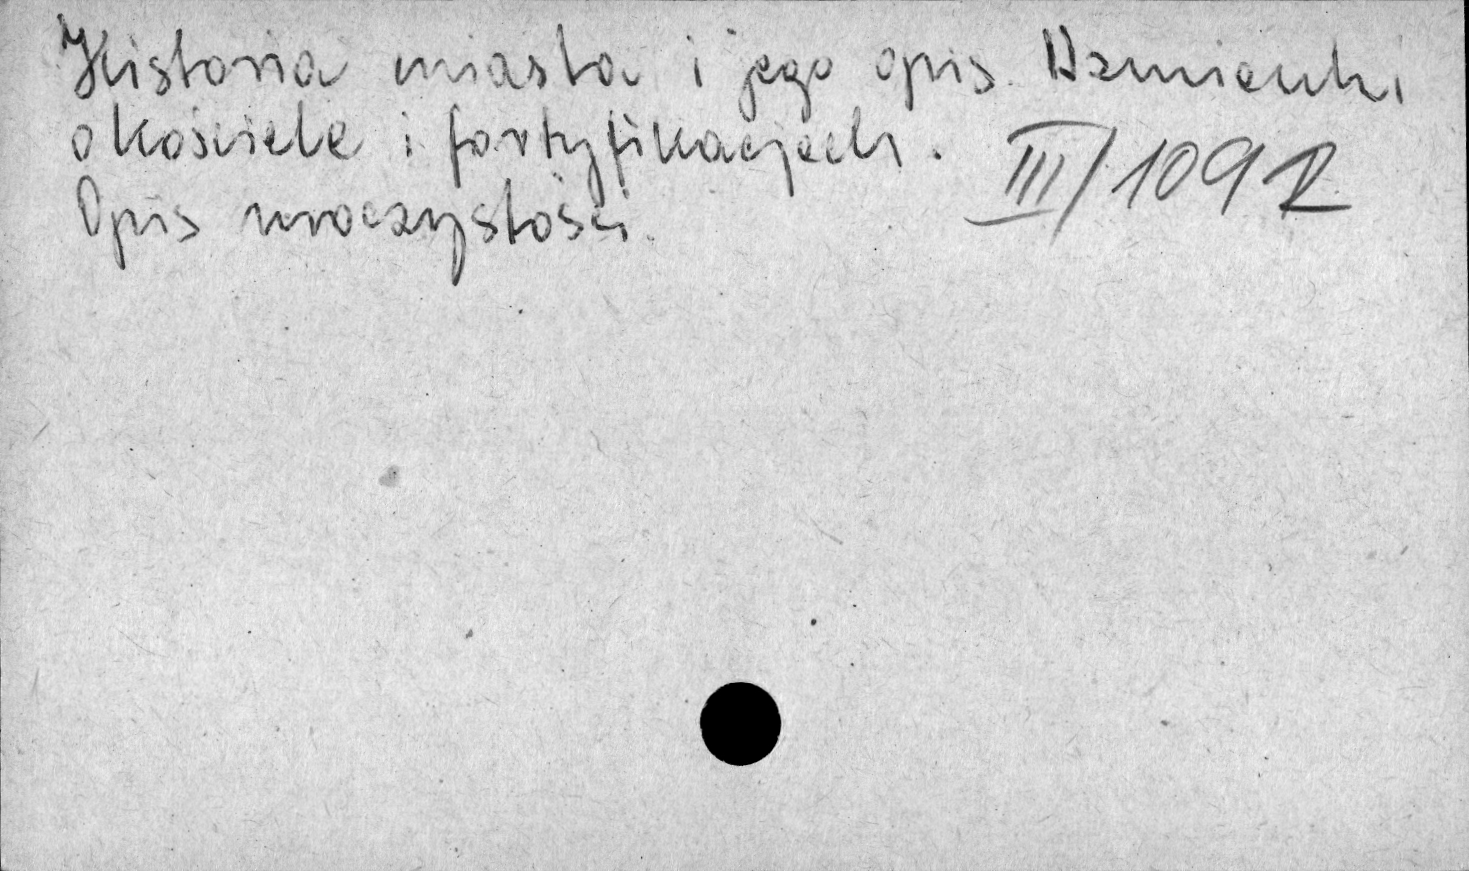 Historia miasta i jego opis. Wzmianki
o kościele i fortyfikacjach.
III/1092
Opis uroczystości.